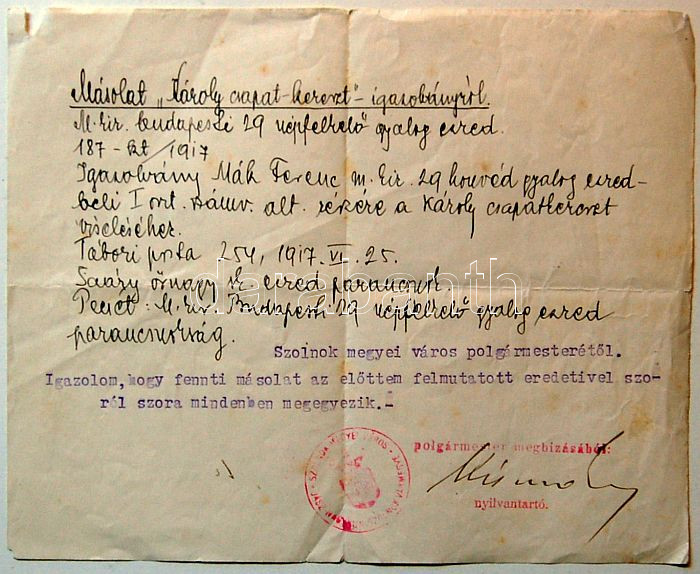 Másolat „Károly csapat-kereszt"- igazolványról.
M. kir. budapesti 29 népfelkelő gyalog ezred.
187 - kt / 1917
Igazolvány Mák Ferenc m. kir. 29 honvéd gyalog ezred-
beli I oszt. számv. alt. részére a Károly csapatkereszt
viseléséhez.
Tábori posta 254, 1917. VI. 25.
őrnagy sk. ezred parancsnok
Pecsét: M. kir. Budapesti 29 népfelkelő gyalog ezred
parancsnokság.
Szolnok megyei város polgármesterétől.
Igazolom, hogy fennti másolat az előttem felmutatott eredetivel szo-
ról szora mindenben megegyezik.-
polgármester megbizásából:
nyilvantartó.
darabanth